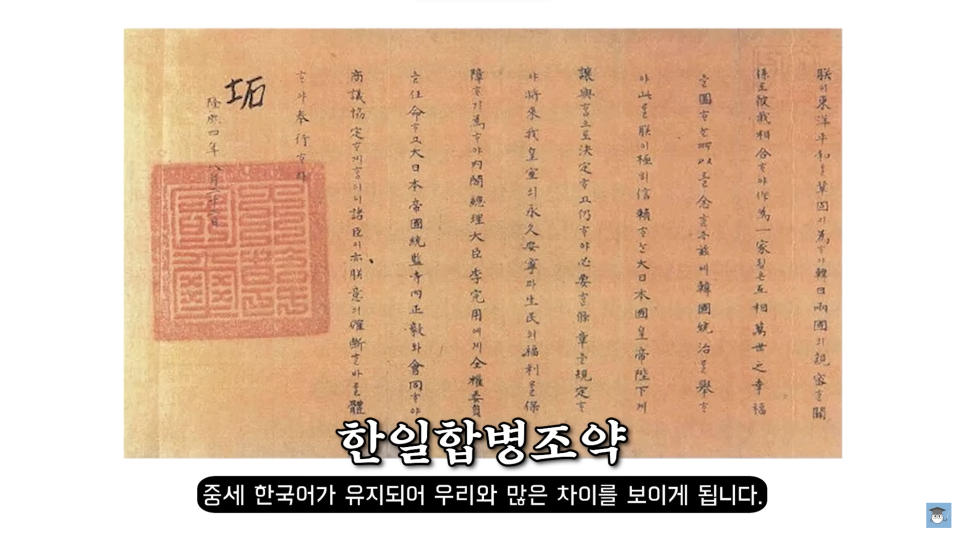 朕이東洋平和를鞏固히기爲ᄒᆞ야韓日兩國의親密ᄒᆞᆫ關
係로彼我相合ᄒᆞ야作爲一家ᄒᆞᆷ은互相萬世之幸福
을圖ᄒᆞᄂᆞᆫ所以로念ᄒᆞᆫ즉玆에韓國統治를擧ᄒᆞ
야此를朕이極히信賴ᄒᆞᄂᆞᆫ大日本國皇帝陛下게
讓與ᄒᆞᆷ으로決定ᄒᆞ고仍ᄒᆞ야必要ᄒᆞᆫ條章을規定ᄒᆞ
야將來我皇室의永久安寧과生民의福利를保
障ᄒᆞ기爲ᄒᆞ야內閣總理大臣李完用에게全權委員
을任命ᄒᆞ고大日本帝國統監寺內正毅와會同ᄒᆞ야
商議協定ᄒᆞ게ᄒᆞᆷ이니諸臣이亦朕意의確斷ᄒᆞᆫ바를體
ᄒᆞ야奉行ᄒᆞ라
坧
隆熙四年八月廿二日
한일합병조약
중세 한국어가 유지되어 우리와 많은 차이를 보이게 됩니다.